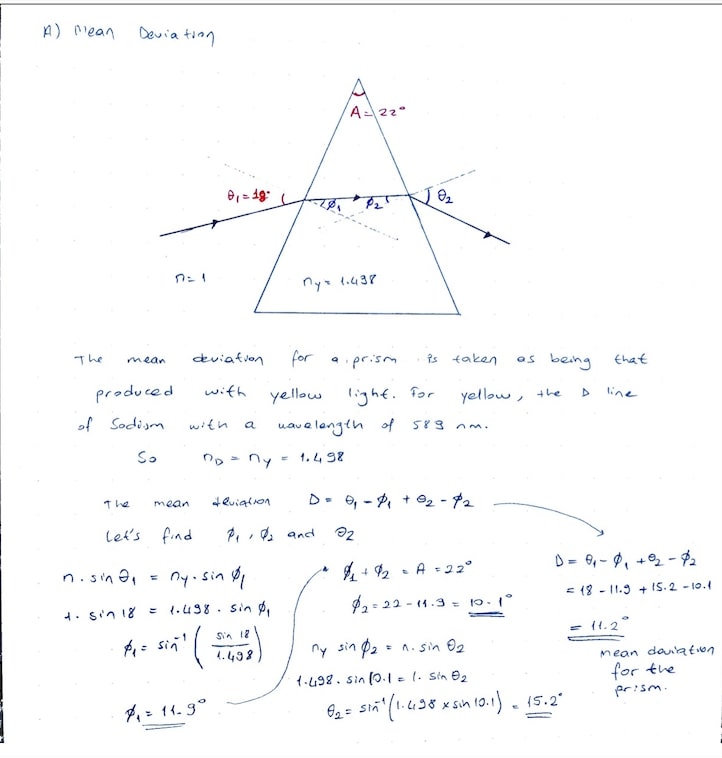 A) Mean Deviation
A = 22°
θ₁ = 18°
ϕ₁
ϕ₂
θ₂
n = 1
ny = 1.498
The mean deviation for a prism is taken as being that
produced with yellow light. For yellow, the D line
of Sodium with a wavelength of 589 nm.
So nD = ny = 1.498
The mean deviation D = θ₁ - ϕ₁ + θ₂ - ϕ₂
Let's find ϕ₁, ϕ₂ and θ₂
n. sin θ₁ = ny. sin ϕ₁
1. sin 18 = 1.498. sin ϕ₁
ϕ₁ = sin⁻¹ (sin 18 / 1.498)
ϕ₁ = 11.9°
ϕ₁ + ϕ₂ = A = 22°
ϕ₂ = 22 - 11.9 = 10.1°
ny sin ϕ₂ = n. sin θ₂
1.498. sin 10.1 = 1. sin θ₂
θ₂ = sin⁻¹ (1.498 x sin 10.1) = 15.2°
D = θ₁ - ϕ₁ + θ₂ - ϕ₂
= 18 - 11.9 + 15.2 - 10.1
= 11.2°
mean daviation
for the
prism.